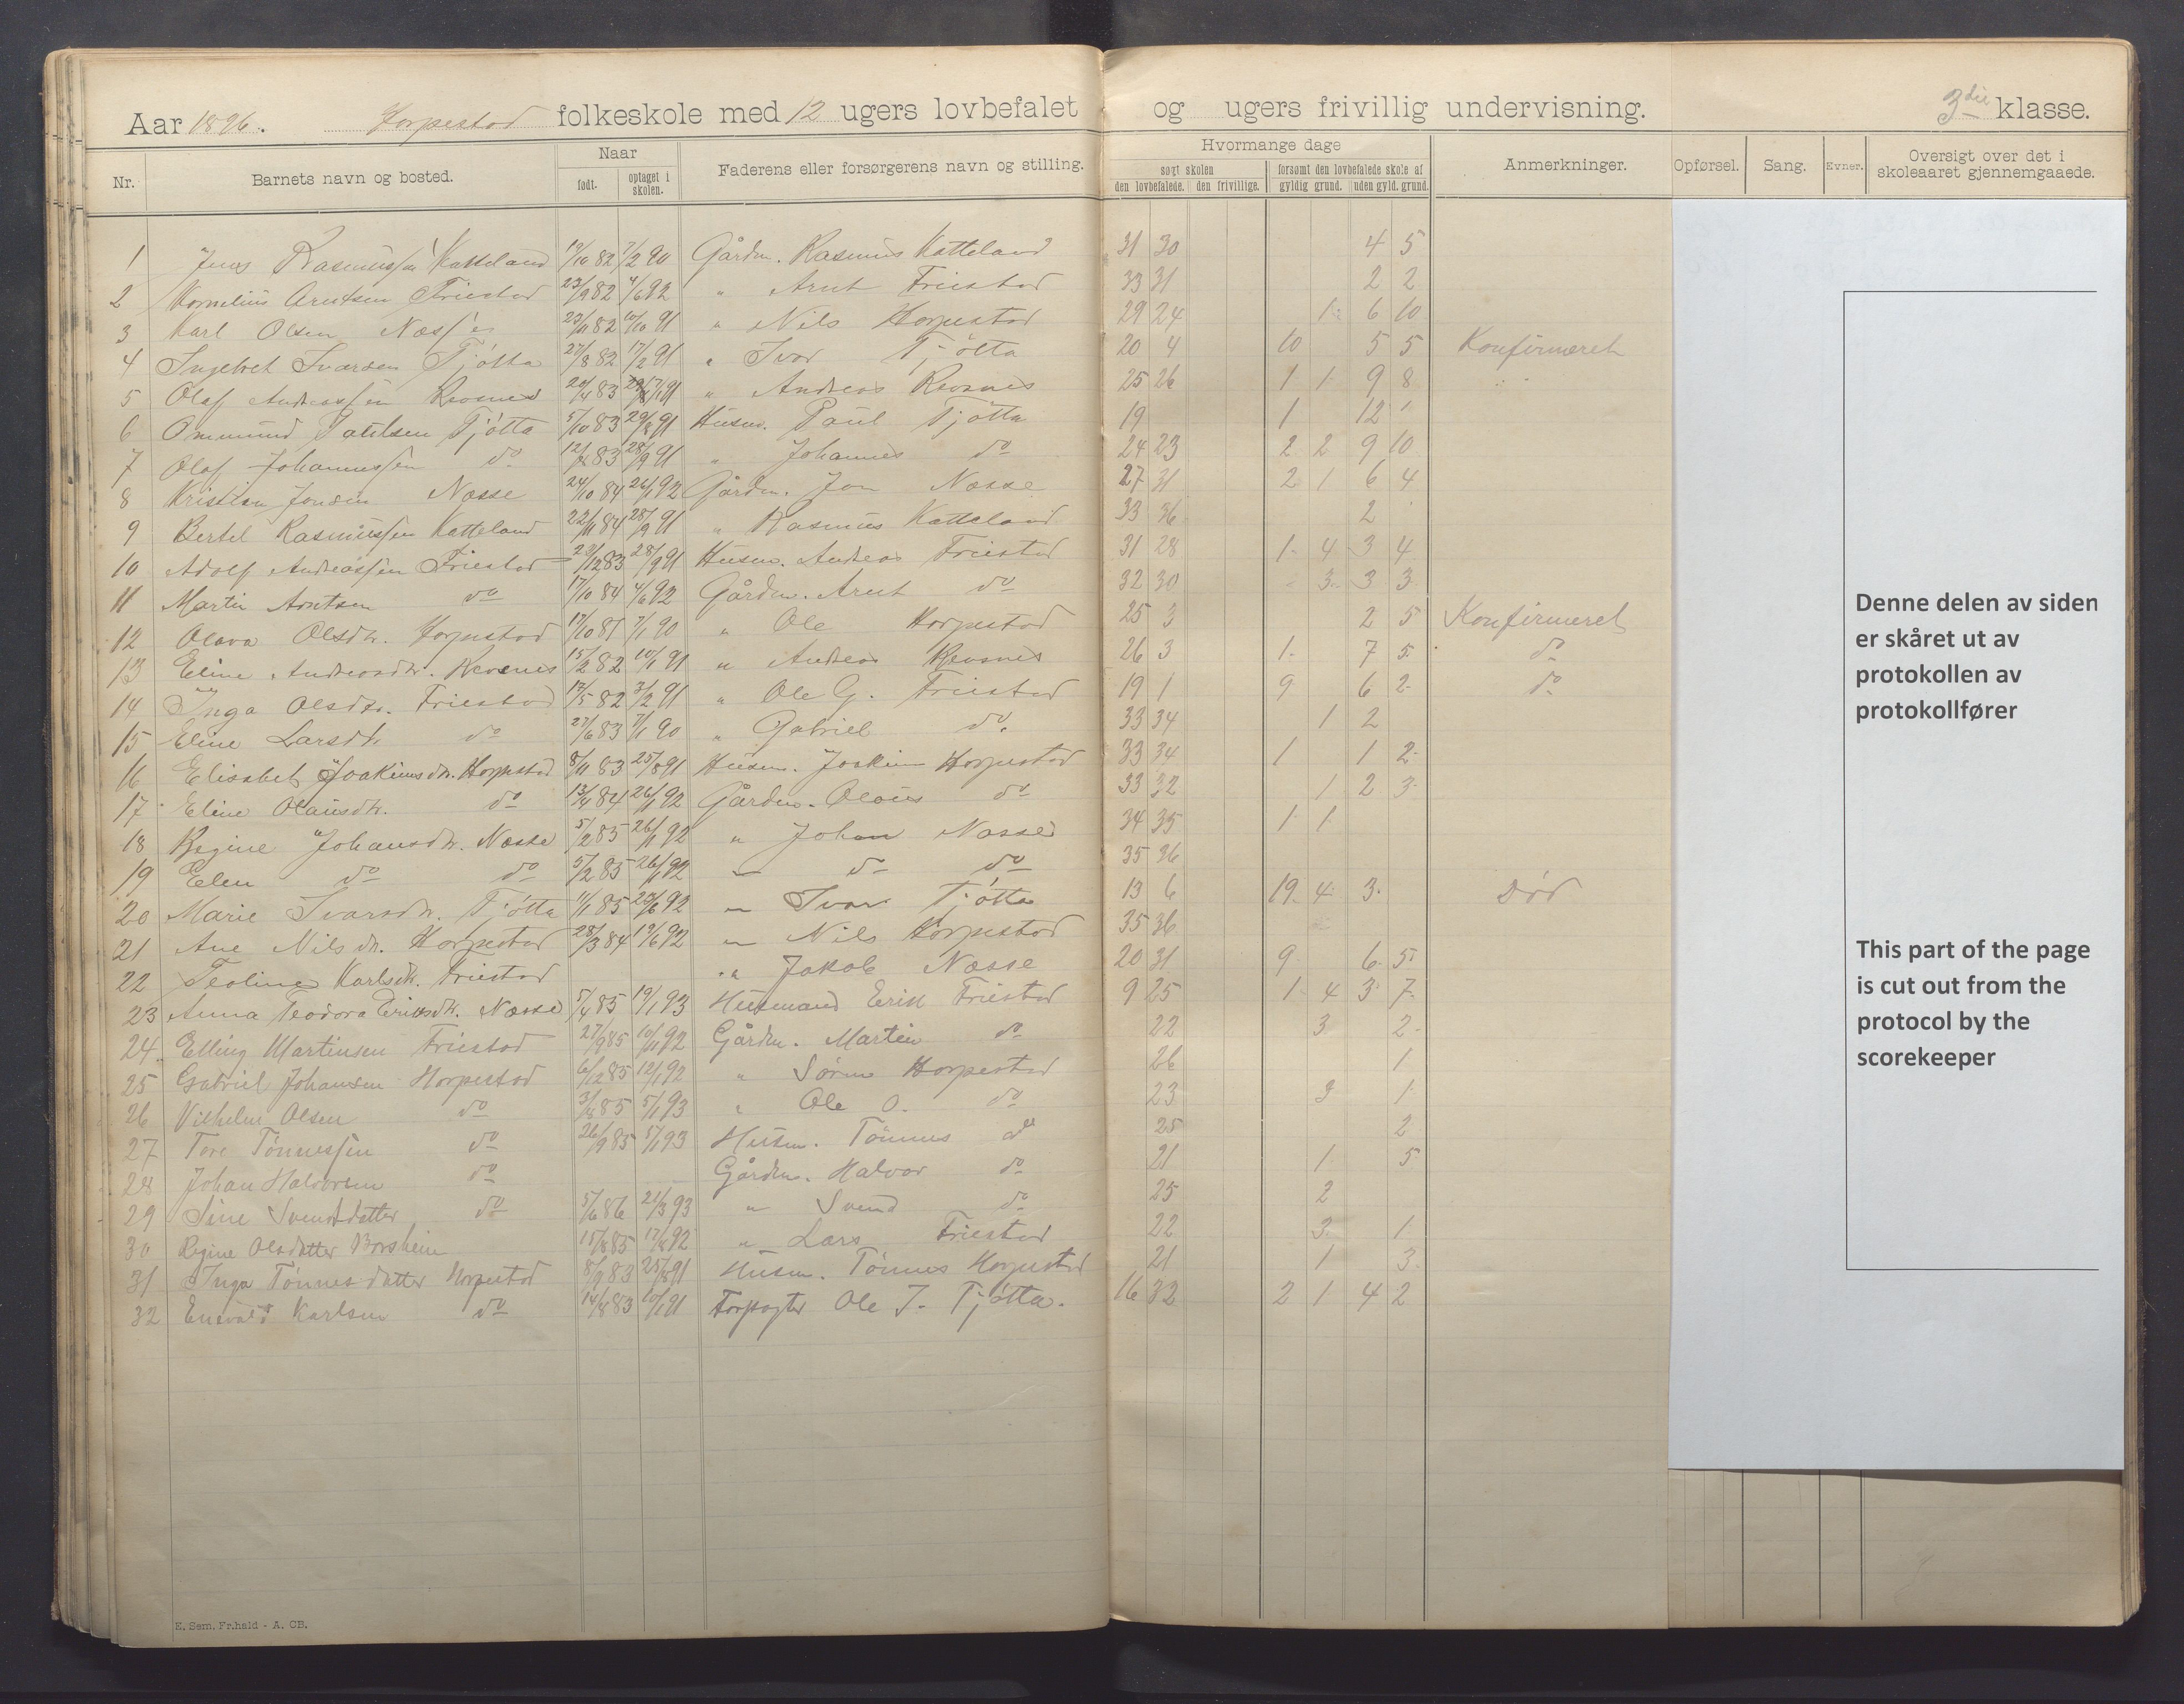 Aar 1896. Horpestad folkeskole med 12 ugers lovbefalet og ugers frivillig undervisning. 3die klasse.
Nr. Barnets navn og bosted. Naar født. optaget i skolen. Faderens eller forsørgerens navn og stilling. Hvormange dage søgt skolen den lovbefalede. den frivillige. forsømt den lovbefalede skole af gyldig grund. uden gyld. grund. Anmerkninger. Opførsel. Sang. Evner. Oversigt over det i skoleaaret gjennemgaaede.
1 Jens Rasmussen Katteland 19/10 82 7/2 90 Gårdm. Rasmus Katteland 31 30 4 5
2 Kornelius Arntsen Friestad 23/9 82 4/6 92 " Arnt Friestad 33 31 2 2
3 Karl Olsen Næsse 23/11 82 10/10 91 " Nils Horpestad 29 24 1 6 10
4 Ingebret Ivarsen Tjøtta 27/8 82 17/2 91 " Ivar Tjøtta 20 4 10 5 5 Konfirmeret
5 Olaf Andreassen Revsnes 20/4 83 91 " Andreas Revsnes 25 26 1 1 9 8 " "
6 Ommund Paulsen Tjøtta 5/10 83 29/8 91 Husm. Paul Tjøtta 19 1 12 1
7 Olaf Johannessen do 12/8 83 28/9 91 " Johannes do 24 23 2 2 9 10
8 Kristian Jonsen Næsse 24/10 84 26/1 92 Gårdm. Jon Næsse 27 31 2 1 6 4
9 Bertel Rasmussen Katteland 22/11 84 28/9 91 " Rasmus Katteland 33 36 2
10 Adolf Andreassen Friestad 23/12 83 28/9 91 Husm. Andreas Friestad 31 28 1 4 3 4
11 Martin Arntsen do 17/10 84 4/6 92 Gårdm. Arnt do 32 30 3 3 3
12 Olava Olsdtr. Horpestad 17/10 81 7/1 90 " Ole Horpestad 25 3 2 5 Konfirmeret
13 Eline Andreasdtr. Revsnes 15/2 82 10/1 91 " Andreas Revsnes 26 3 1 7 5 do
14 Inga Olsdtr. Friestad 12/5 82 3/2 91 " Ole G. Friestad 19 1 9 6 2 do
15 Eline Larsdtr. do 27/6 83 7/1 90 " Gabriel do. 33 34 1 2
16 Elisabet Joakimsdtr. Horpestad 8/11 83 25/8 91 Husm. Joakim Horpestad 33 34 1 1 2
17 Eline Olausdtr. do 13/4 84 26/1 92 Gårdm. Olaus do 33 32 1 2 3
18 Regine Johansdtr. Næsse 5/2 85 26/1 92 " Johan Næsse 34 35 1 1
19 Elen do do 5/2 85 26/1 92 " do do 35 36
20 Marie Ivarsdtr. Tjøtta 11/1 85 20/6 92 " Ivar Tjøtta 13 6 19 4 3 Død
21 Ane Nilsdtr. Horpestad 28/3 84 19/6 92 " Nils Horpestad 35 36
22 Teoline Karlsdtr. Friestad " Jakob Næsse 20 31 9 6 5
23 Anna Teodora Eriksdtr. Næsse 5/4 85 19/1 93 Husmand Erik Friestad 9 25 1 4 3 7
24 Elling Martinsen Friestad 27/9 85 10/11 92 Gårdm. Martin do 22 3 2
25 Gabriel Johansen Horpestad 6/12 85 12/1 92 " Søren Horpestad 26 1
26 Vilhelm Olsen do 3/8 85 5/1 93 " Ole O. do 23 3 1
27 Tore Tønnessen do 26/9 85 5/1 93 Husm. Tønnes do 25 2
28 Johan Halvorsen do Gårdm. Halvor do 21 1 5
29 Sine Svendsdatter do 5/6 86 21/3 93 " Svend do 25 2
30 Regine Olsdatter Borsheim 15/8 85 17/8 92 " Lars Friestad 22 3 1
31 Inga Tønnesdatter Horpestad 8/9 83 25/8 91 Husm. Tønnes Horpestad 21 1 3
32 Enevald Karlsen do 14/8 83 10/1 91 Forpagter Ole J. Tjøtta. 16 32 2 1 4 2
Denne delen av siden
er skåret ut av
protokollen av
protokollfører
This part of the page
is cut out from the
protocol by the
scorekeeper
E. Sem. Fr.hald - A. CB.